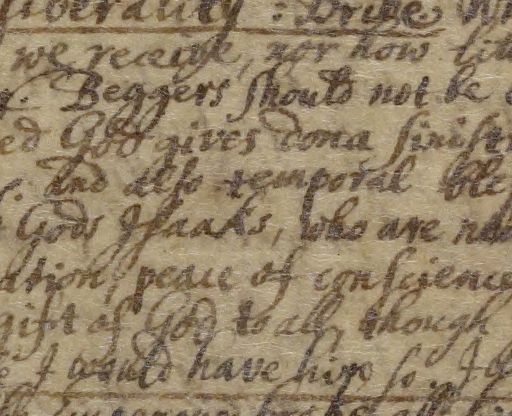 liberality : Bribe
we receive, nor how
Beggers should not be
ed God gives dona sinist
And also temporal bles
Gods Isaaks, who are
ation, peace of conscience
gift of God to all, though
I would have him so.